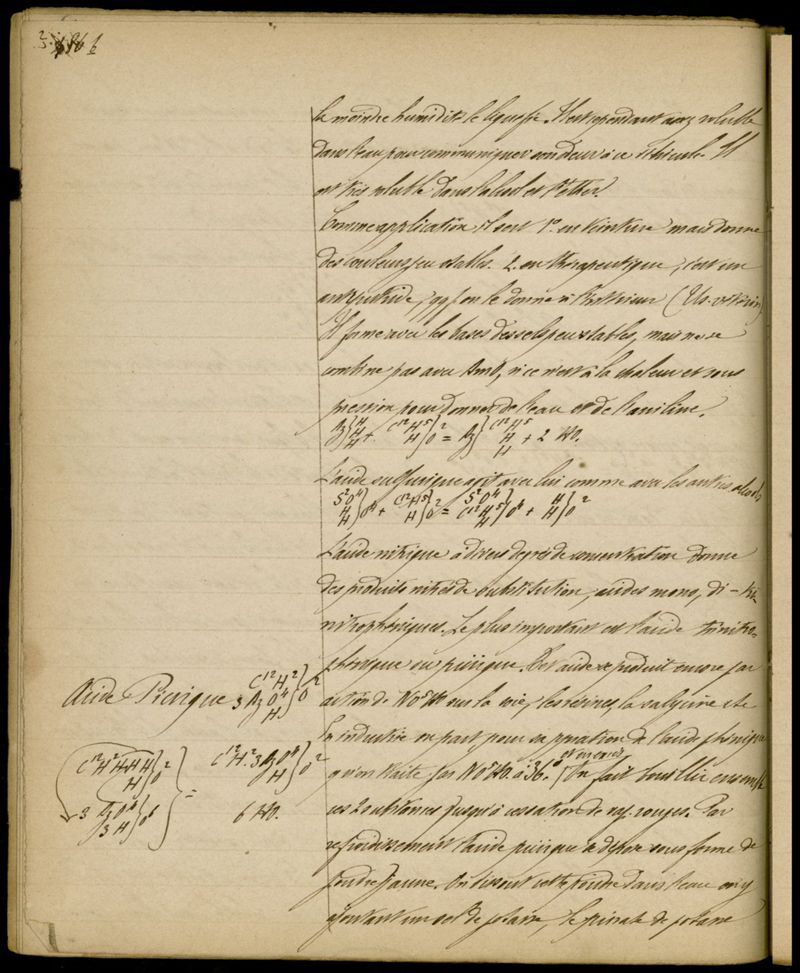 la moindre humidité le liquéfie. Il est cependant assez soluble
dans l'eau pour communiquer son odeur à ce véhicule. Il
est très soluble dans l'alcool et l'éther.
Comme application il sert 1° en teinture mais donne
des couleurs peu stables. 2. en thérapeutique, c'est un
antiputride, on le donne à l'extérieur
Il forme avec les bases des sels peu stables, mais ne se
combine pas avec AmO, si ce n'est à la chaleur et sous
pression pour donner de l'eau et de l'aniline.
Az } H H H + C¹²H⁵ H } O² = Az } C¹²H⁵ H H + 2 HO.
L'acide sulfurique agit avec lui comme avec les autres alcools
S²O⁴ H H } O⁴ + C¹²H⁵ H } O² = S²O⁴ C¹²H⁵ H } O⁴ + H H } O²
L'acide nitrique à divers degrés de concentration donne
des produits nitrés de substitution, acides mono, di-tri-
nitrophéniques. Le plus important est l'acide trinitro-
phénique ou picrique. Cet acide se produit encore par
Acide Picrique C¹²H² 3 AzO⁴ H } O²
action de NO⁵HO sur la soie, les résines, la salicine etc
En industrie on part pour sa préparation de l'acide phénique
qu'on traite par NO⁵HO à 36°. On fait bouillir ensemble
C¹²H²HHH H } O² 3 AzO⁴ 3 H } O⁶ } = C¹²H².3AzO⁴ H } O² 6 HO.
ces 2 substances jusqu'à cessation de vap. rouges. Par
refroidissement l'acide picrique se dépose sous forme de
poudre jaune. En dissolvant cette poudre dans l'eau on y
ajoutant un sel de potasse, le picrate de potasse